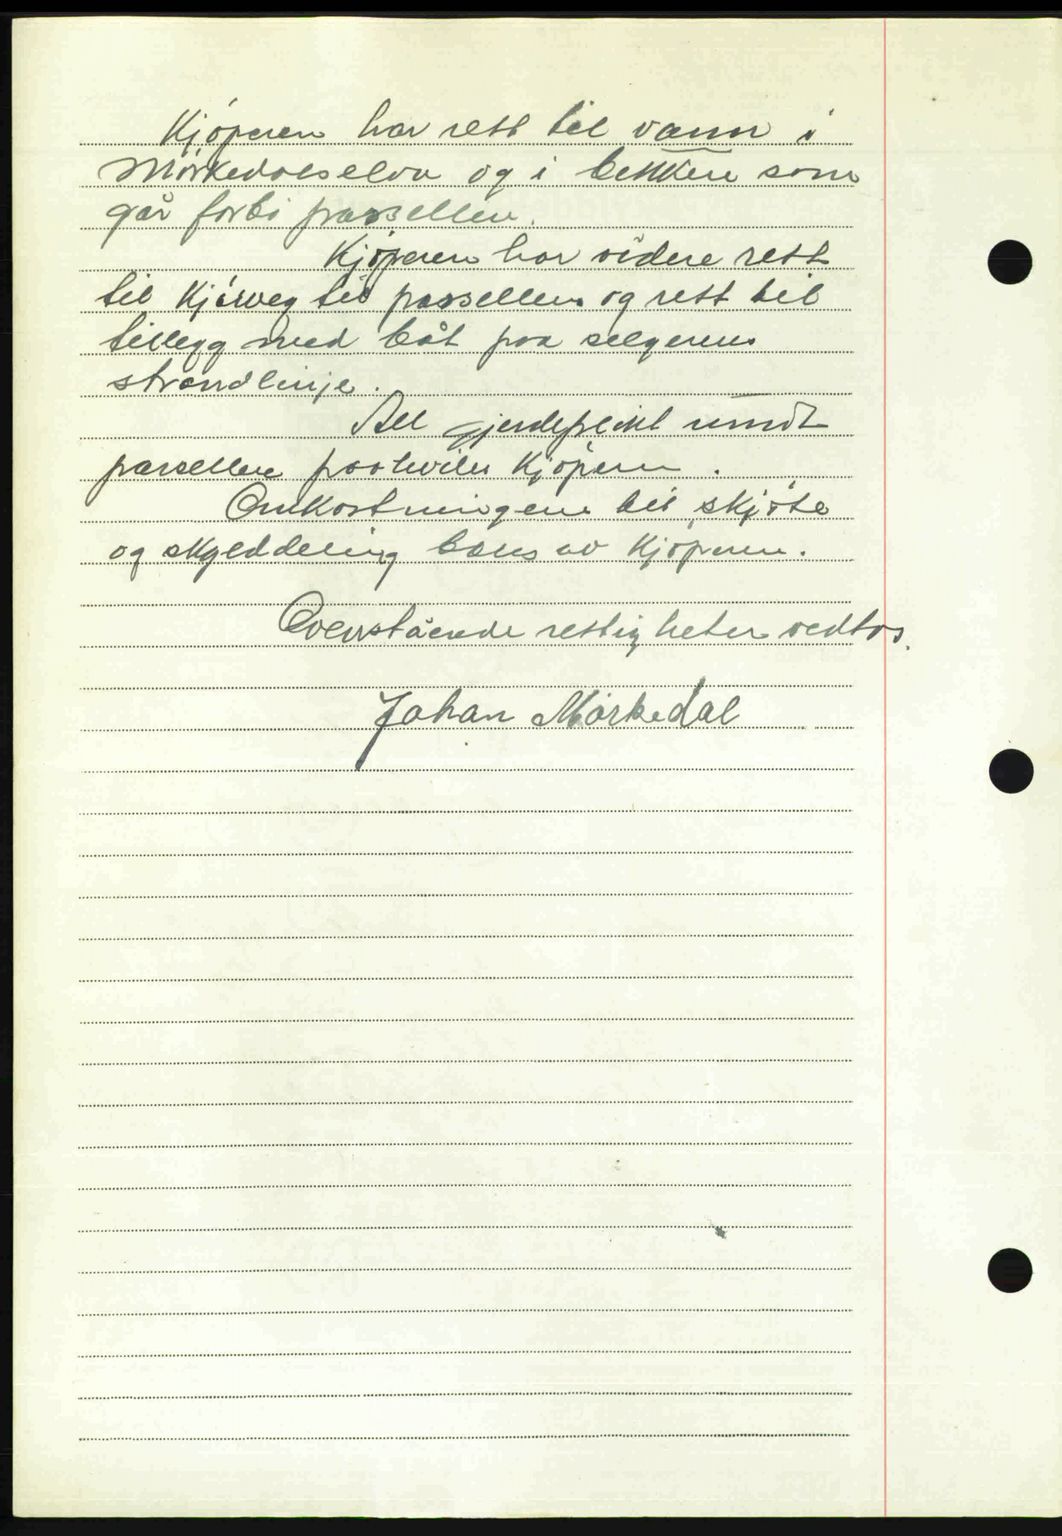 Kjøperen har rett til vann i
Mørkedalselva og i bekken som
går forbi parsellen.
Kjøperen har videre rett
til Kjøreveg til parsellen og rett til
tillegg med båt paa selgerens
strandlinje.
All gjerdeplikt rundt
parsellen paahviler Kjøperen.
Omkostningene til skjøte
og skylddeling bæres av Kjøperen.
Ovenstående rettigheter vedtas.
Johan Mørkedal